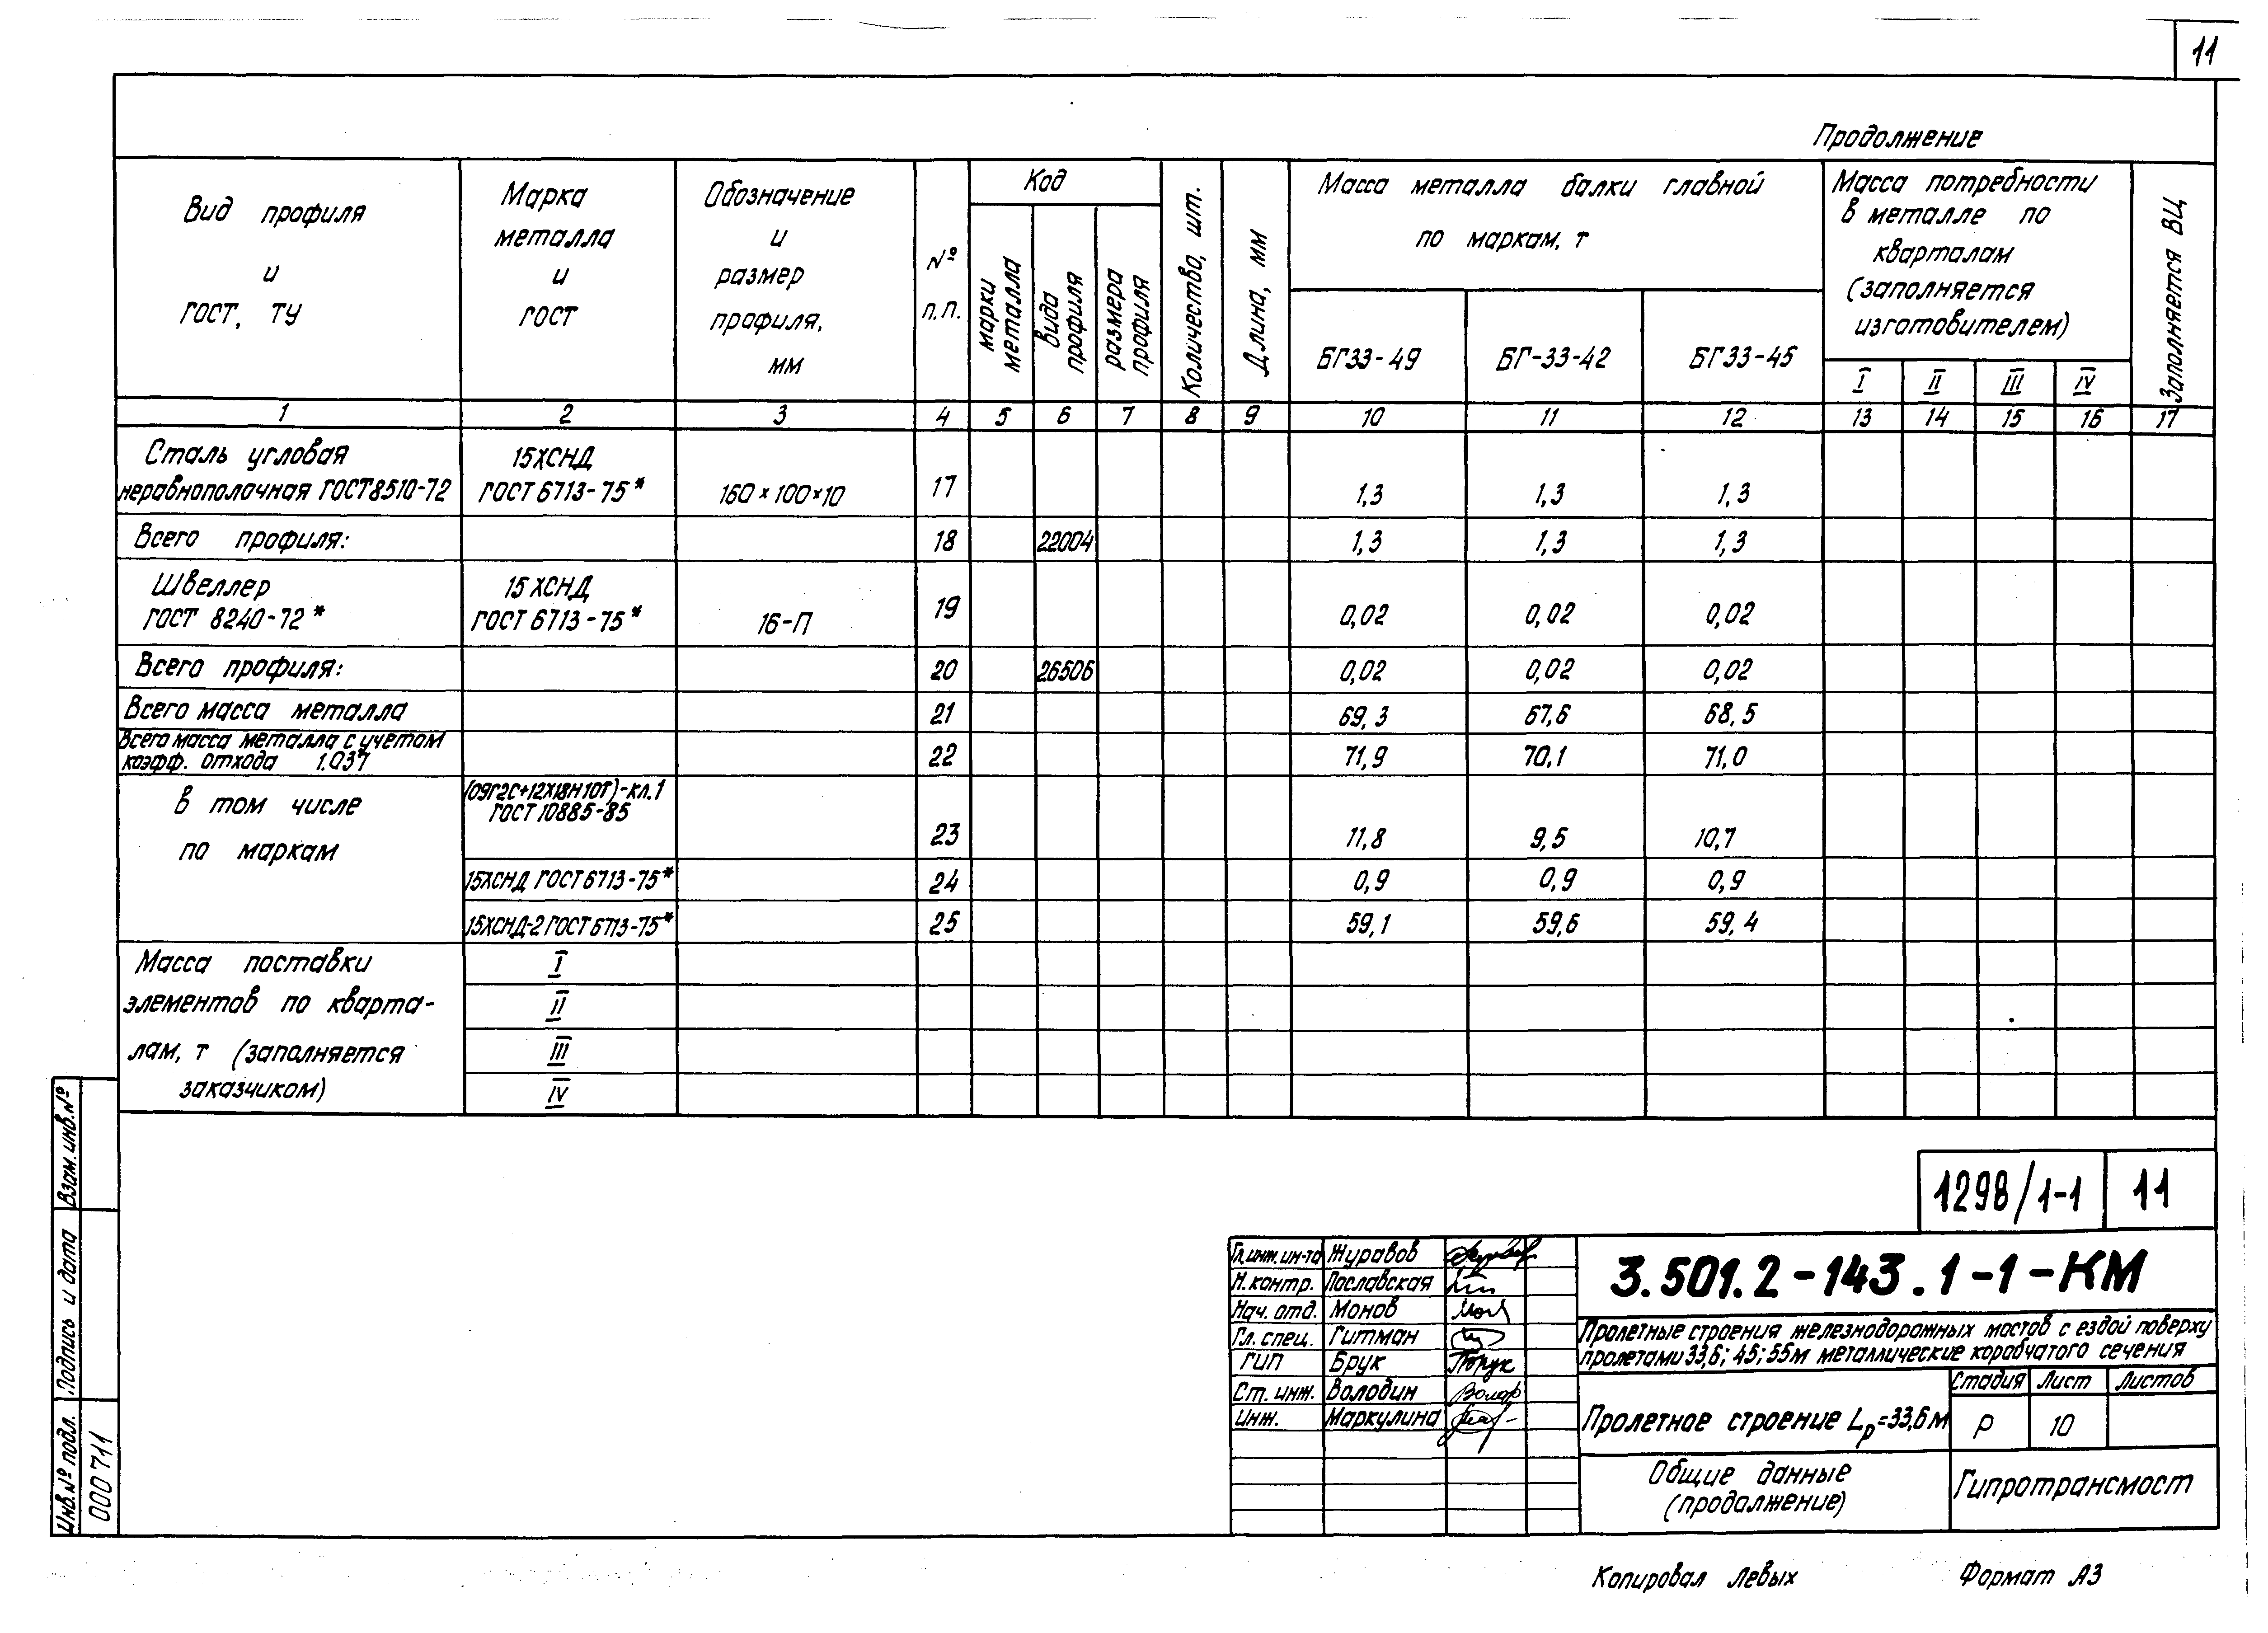 11
Продолжение
Вид профиля и ГОСТ, ТУ
Марка металла и ГОСТ
Обозначение и размер профиля, мм
№ п.п.
Код
марки металла
вида профиля
размера профиля
Количество, шт.
Длина, мм
Масса металла балки главной по маркам, т
БГ33-49
БГ-33-42
БГ33-45
Масса потребности в металле по кварталам (заполняется изготовителем)
I II III IV
Заполняется ВЦ
1 2 3 4 5 6 7 8 9 10 11 12 13 14 15 16 17
Сталь угловая 15ХСНД
неравнополочная ГОСТ8510-72 ГОСТ 6713-75* 160×100×10 17 1,3 1,3 1,3
Всего профиля: 18 22004 1,3 1,3 1,3
Швеллер 15ХСНД
ГОСТ 8240-72* ГОСТ 6713-75* 16-П 19 0,02 0,02 0,02
Всего профиля: 20 26506 0,02 0,02 0,02
Всего масса металла 21 69,3 67,6 68,5
Всего масса металла с учетом
коэфф. отхода 1.037 22 71,9 70,1 71,0
в том числе (09Г2С+12Х18Н10Т)-кл.1
ГОСТ 10885-85
по маркам 23 11,8 9,5 10,7
15ХСНД ГОСТ 6713-75* 24 0,9 0,9 0,9
15ХСНД-2 ГОСТ 6713-75* 25 59,1 59,6 59,4
Масса поставки I
элементов по кварта- II
лам, т (заполняется III
заказчиком) IV
Взам. инв. №
Подпись и дата
Инв. № подл.
000711
1298/1-1 11
Гл. инж. ин-та Журавов
Н. контр. Пославская
Нач. отд. Монов
Гл. спец. Гитман
ГИП Брук
Ст. инж. Володин
Инж. Маркулина
3.501.2-143.1-1-КМ
Пролетные строения железнодорожных мостов с ездой поверху
пролетами 33,6; 45; 55м металлические коробчатого сечения
Пролетное строение Lр=33,6м
Стадия Лист Листов
Р 10
Общие данные
(продолжение)
Гипротрансмост
Копировал Левых Формат А3